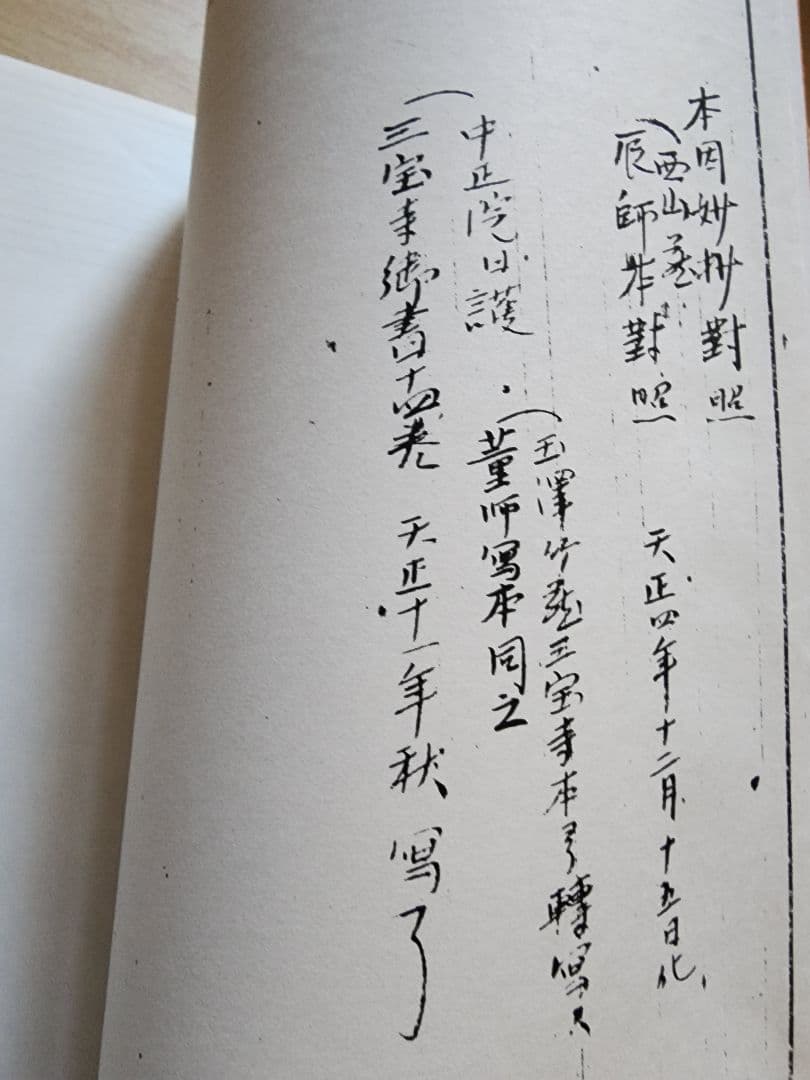 本因妙抄對照
(西山蔵
辰師本對照 天正四年十二月十五日化、
中正院日護・(玉澤竹蔵三宝寺本ヨリ轉写
董師寫本同之
(三宝寺御書四十四巻 天正十一年秋 寫了